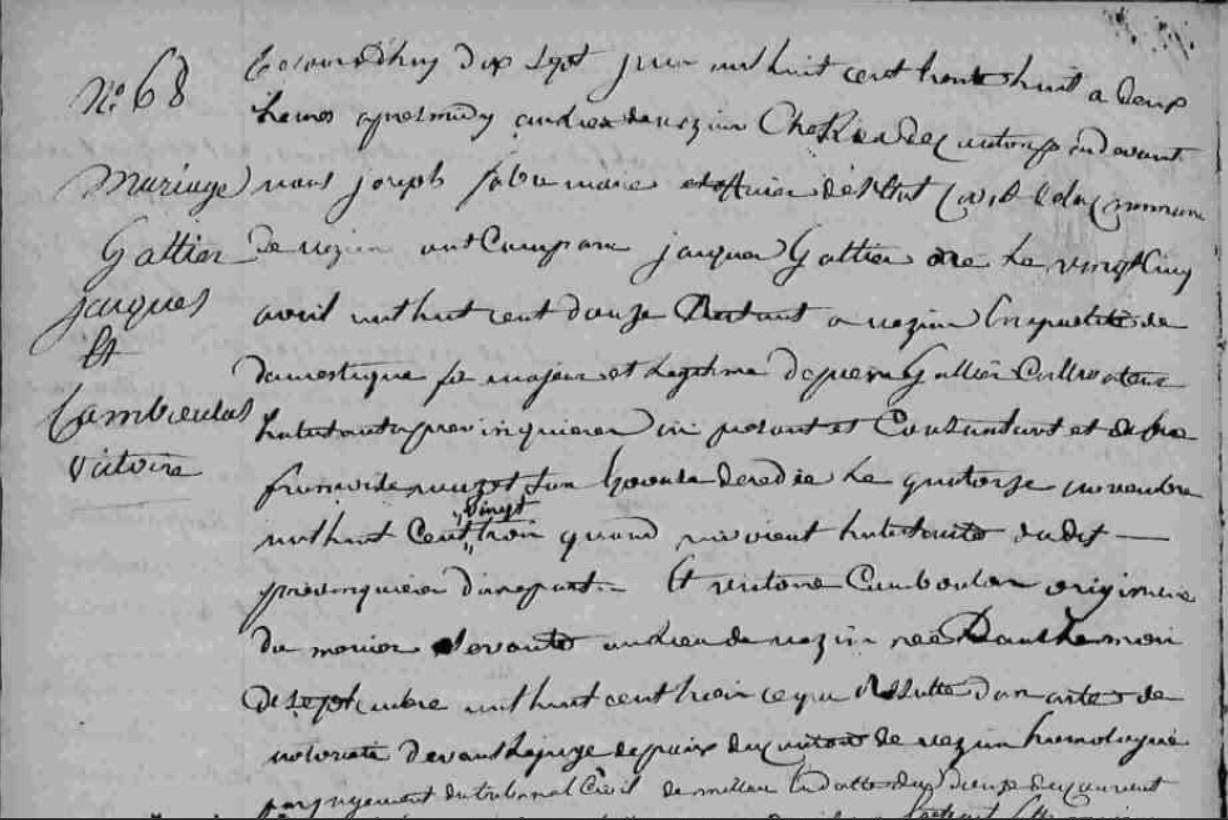 N° 68
Mariage
Gattier
jacques
Et
Camboulas
victoire
Ecejourdhuy dix sept juin mil huit cent trente huit a deux
heures apres midy au lieu de vezins Chef lieu de canton par devant
nous joseph fabre maire et officier de l'Etat Civil de la Commune
de vezins ont Comparu jacques Gattier née Le vingt Cinq
avril mil huit cent douze habitant a vezins En qualité de
domestique fils majeur et Legitime de pierre Gattier Cultivateur
habitant a previnquieres ici present et Consentant et de feue
son Epouse decedée Le quatorze novembre
mil huit Cent vingt trois quand vivoient habitants du dit —
previnquieres d'une part. Et victoire Camboulas originaire
du servante au lieu de vezins née dans Le mois
de septembre mil huit cent trois ce qui Resulte d'un acte de
notorieté devant Le juge de paix du canton de vezins homologué
par jugement du tribunal Civil de millau En datte du deux du courant